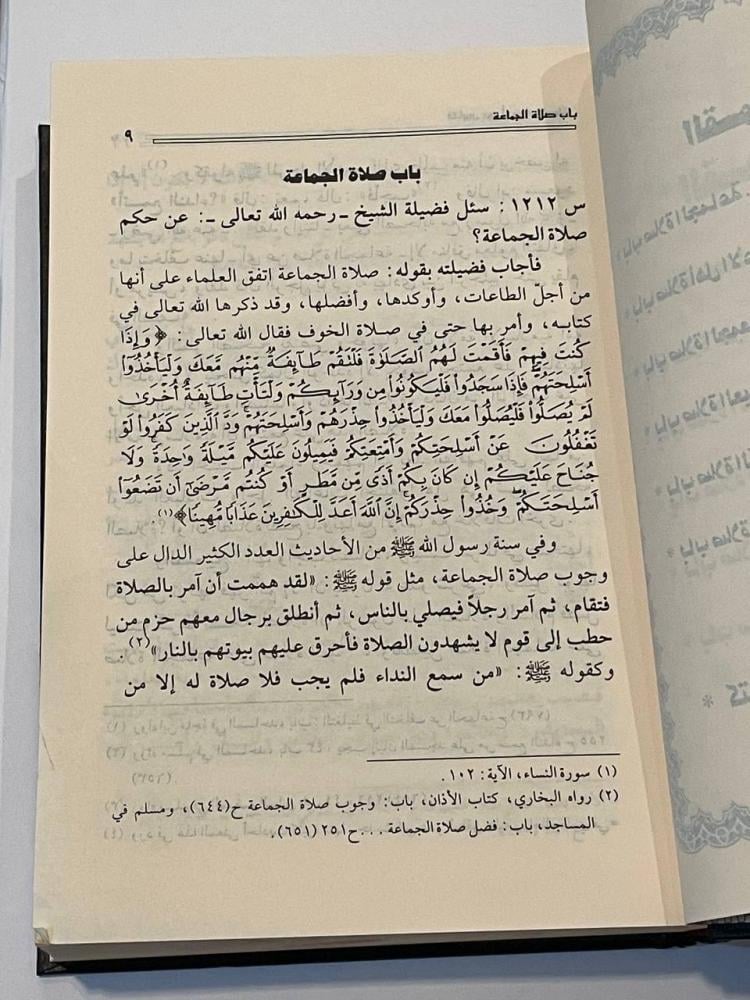 باب صلاة الجماعة
٩
باب صلاة الجماعة
س ١٢١٢: سئل فضيلة الشيخ ـ رحمه الله تعالى ـ: عن حكم
صلاة الجماعة؟
فأجاب فضيلته بقوله: صلاة الجماعة اتفق العلماء على أنها
من أجلّ الطاعات، وأوكدها، وأفضلها، وقد ذكرها الله تعالى في
كتابه، وأمر بها حتى في صلاة الخوف فقال الله تعالى: ﴿وَإِذَا
كُنتَ فِيهِمْ فَأَقَمْتَ لَهُمُ ٱلصَّلَوٰةَ فَلْتَقُمْ طَآئِفَةٌ مِّنْهُم مَّعَكَ وَلْيَأْخُذُوٓا۟
أَسْلِحَتَهُمْ فَإِذَا سَجَدُوا۟ فَلْيَكُونُوا۟ مِن وَرَآئِكُمْ وَلْتَأْتِ طَآئِفَةٌ أُخْرَىٰ
لَمْ يُصَلُّوا۟ فَلْيُصَلُّوا۟ مَعَكَ وَلْيَأْخُذُوا۟ حِذْرَهُمْ وَأَسْلِحَتَهُمْ وَدَّ ٱلَّذِينَ كَفَرُوا۟ لَوْ
تَغْفُلُونَ عَنْ أَسْلِحَتِكُمْ وَأَمْتِعَتِكُمْ فَيَمِيلُونَ عَلَيْكُم مَّيْلَةً وَٰحِدَةً وَلَا
جُنَاحَ عَلَيْكُمْ إِن كَانَ بِكُمْ أَذًى مِّن مَّطَرٍ أَوْ كُنتُم مَّرْضَىٰٓ أَن تَضَعُوٓا۟
أَسْلِحَتَكُمْ وَخُذُوا۟ حِذْرَكُمْ إِنَّ ٱللَّهَ أَعَدَّ لِلْكَٰفِرِينَ عَذَابًا مُّهِينًا﴾(١).
وفي سنة رسول الله ﷺ من الأحاديث العدد الكثير الدال على
وجوب صلاة الجماعة، مثل قوله ﷺ: «لقد هممت أن آمر بالصلاة
فتقام، ثم آمر رجلاً فيصلي بالناس، ثم أنطلق برجال معهم حزم من
حطب إلى قوم لا يشهدون الصلاة فأحرق عليهم بيوتهم بالنار»(٢).
وكقوله ﷺ: «من سمع النداء فلم يجب فلا صلاة له إلا من
(١) سورة النساء، الآية: ١٠٢.
(٢) رواه البخاري، كتاب الأذان، باب: وجوب صلاة الجماعة ح(٦٤٤)، ومسلم في
المساجد، باب: فضل صلاة الجماعة ...ح٢٥١ (٦٥١).